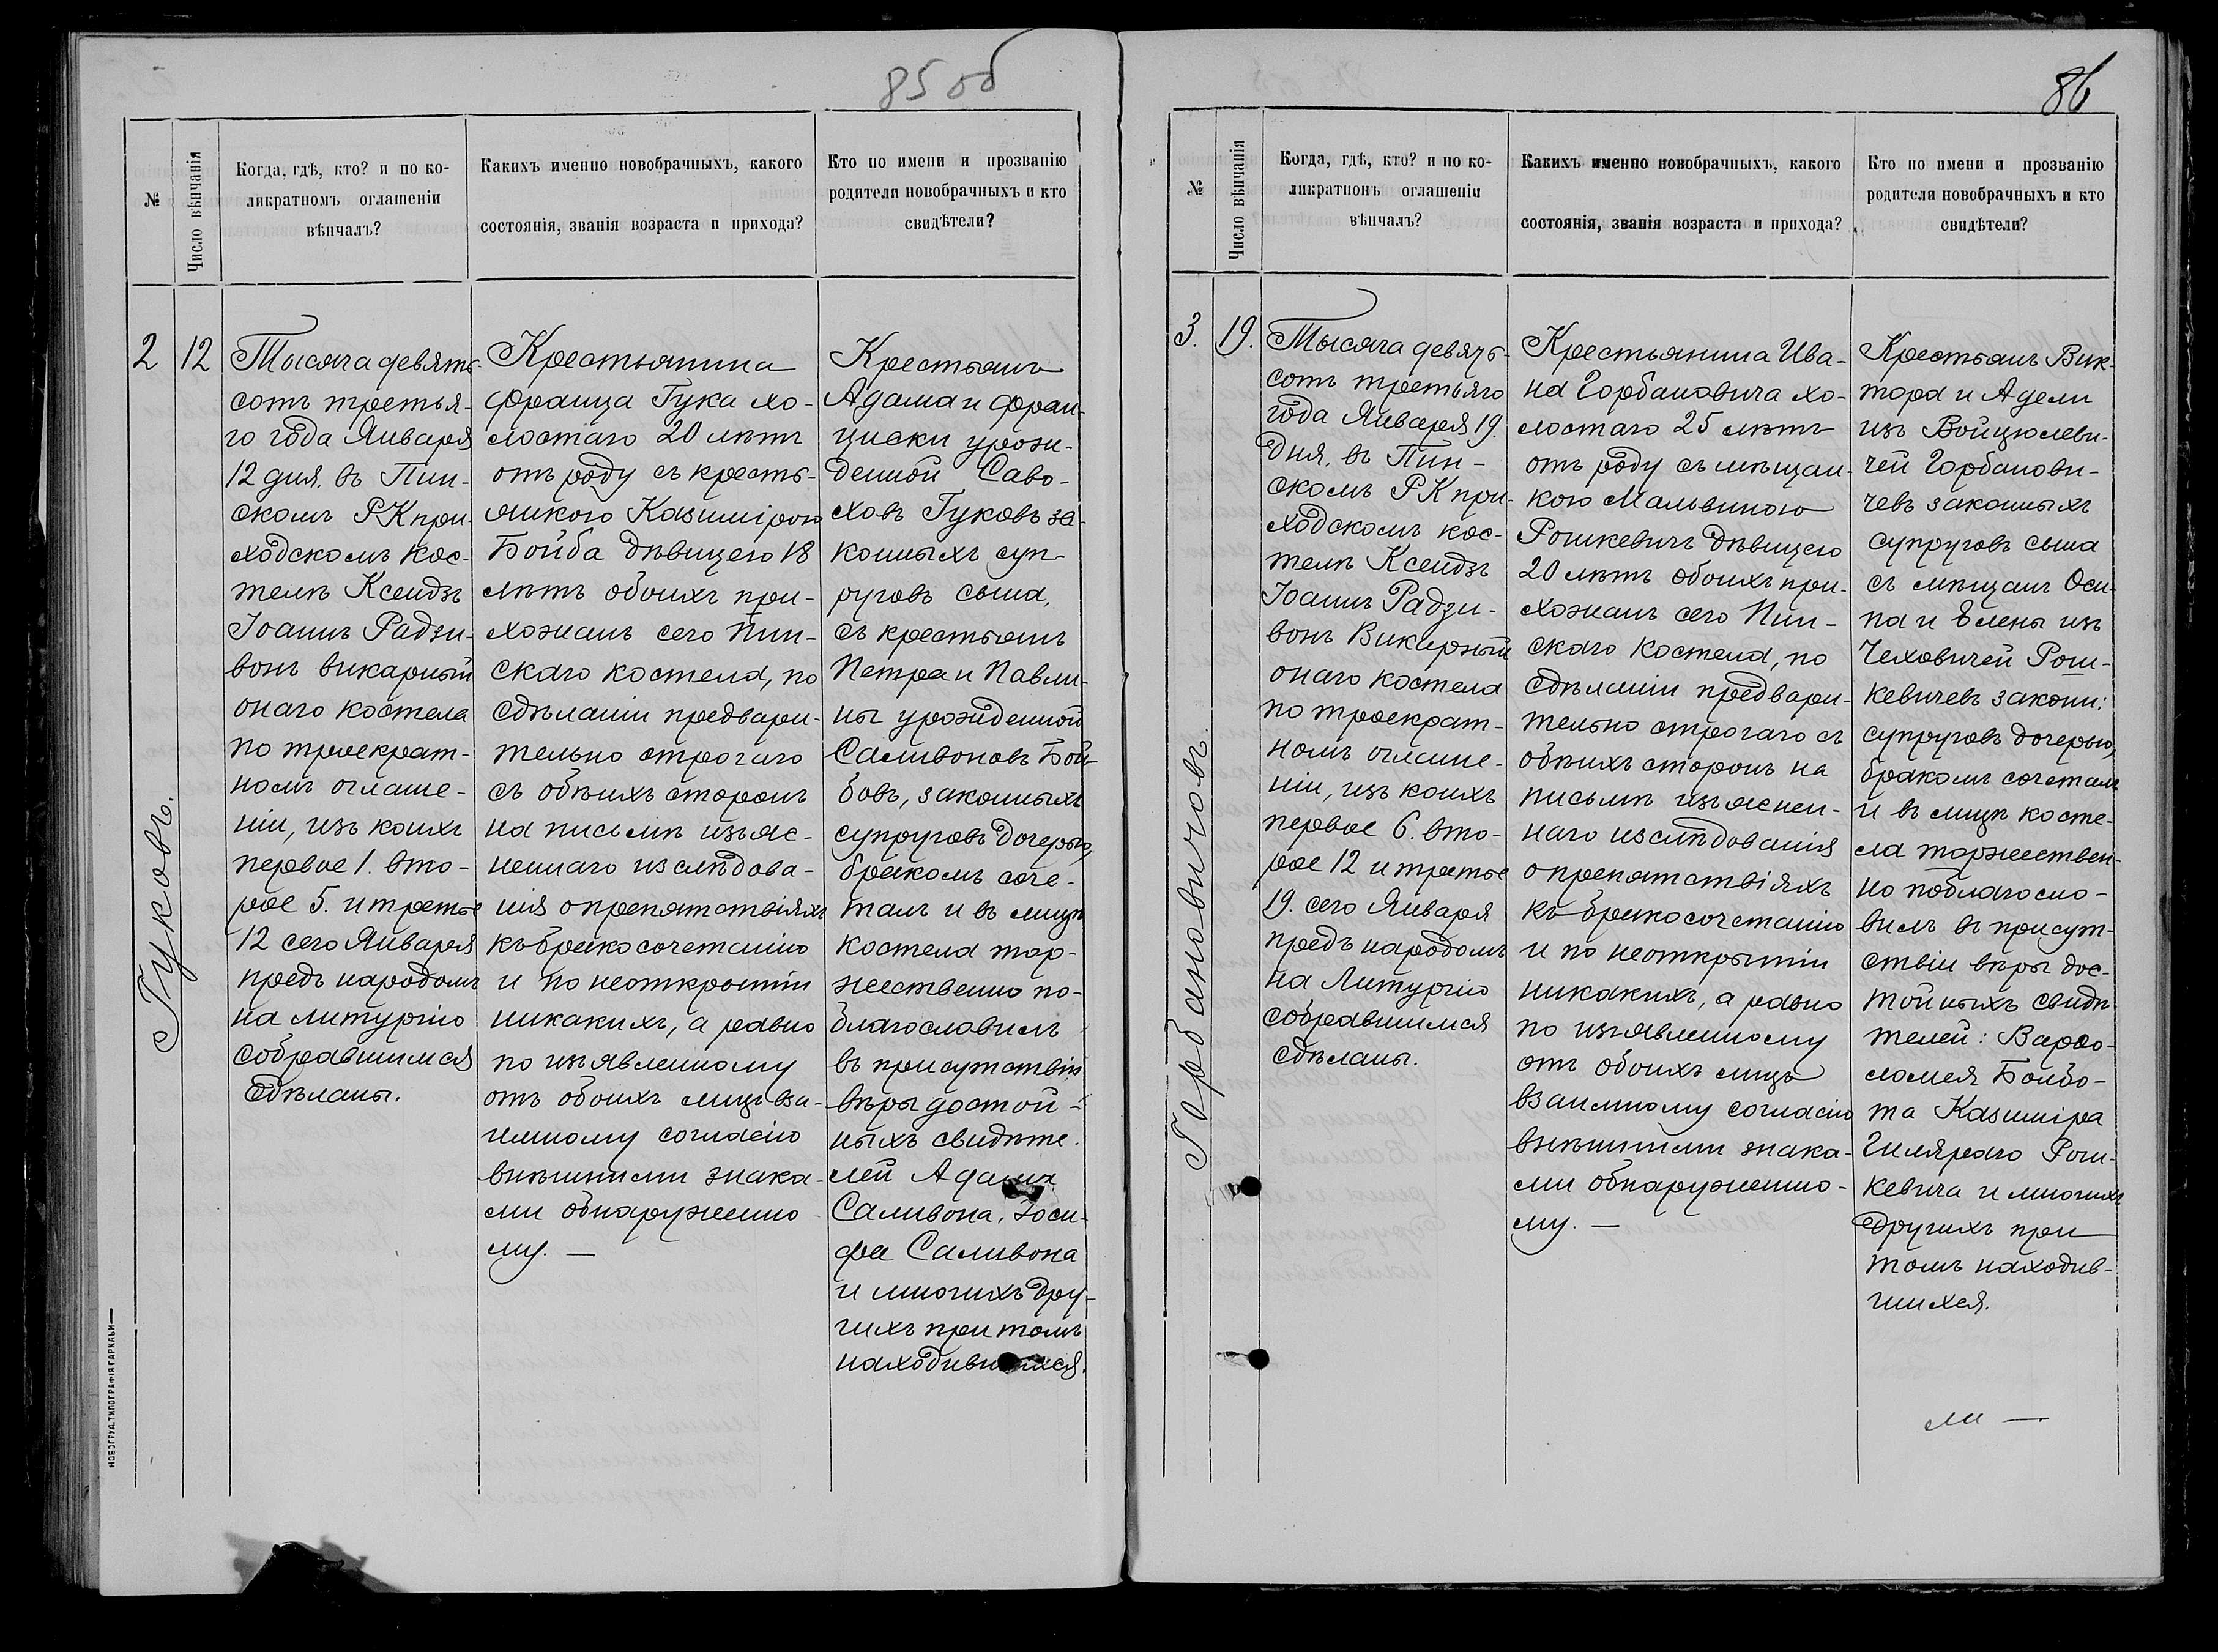 85 об
№
Число вѣнчанія
Когда, гдѣ, кто? и по ко-
ликратномъ оглашеніи
вѣнчалъ?
Какихъ именно новобрачныхъ, какого
состоянія, званія возраста и прихода?
Кто по имени и прозванію
родители новобрачныхъ и кто
свидѣтели?
2
12
Гуковъ.
Тысяча девять-
сотъ третья-
го года Января
12 дня. въ Пин-
скомъ РК при-
ходскомъ кос-
телѣ Ксендзъ
Іоаннъ Радзи-
вонъ викарный
онаго костела
по троекрат-
номъ оглаше-
ніи, изъ коихъ
первое 1. вто-
рое 5. и третье
12 сего Января
предъ народомъ
на литургію
собравшимся
сдѣланы.
Крестьянина
Франца Гука хо-
лостаго 20 лѣтъ
отъ роду съ кресть-
янкою Казимірою
Бойба дѣвицею 18
лѣтъ обоихъ при-
хожанъ сего Пин-
скаго костела, по
сдѣланіи предвари-
тельно строгаго
съ обѣихъ сторонъ
на письмѣ изъяс-
неннаго изслѣдова-
нія о препятствіяхъ
къ бракосочетанію
и по неоткрытіи
никакихъ, а равно
по изъявленному
отъ обоихъ лицъ вза-
имному согласію
внѣшними знака-
ми обнаруженно-
му. —
Крестьянъ
Адама и Фран-
циски урож-
денной Саво-
ховъ Гуковъ за-
конныхъ суп-
руговъ сына,
съ крестьянъ
Петра и Павли-
ны урожденной
Саливоновъ Бой-
бовъ, законныхъ
супруговъ дочерью,
бракомъ соче-
талъ и въ лицѣ
костела тор-
жественно по-
благословилъ
въ присутствіи
вѣры достой-
ныхъ свидѣте-
лей Адама
Саливона, Іоси-
фа Саливона
и многихъ дру-
гихъ при томъ
находившихся.
НОВОГРУД. ТИПОГРАФІЯ ГАРКАВИ
86
№
Число вѣнчанія
Когда, гдѣ, кто? и по ко-
ликратномъ оглашеніи
вѣнчалъ?
Какихъ именно новобрачныхъ, какого
состоянія, званія возраста и прихода?
Кто по имени и прозванію
родители новобрачныхъ и кто
свидѣтели?
3.
19.
Горбановичовъ.
Тысяча девять-
сотъ третьяго
года Января 19.
дня. въ Пин-
скомъ РК при-
ходскомъ кос-
телѣ Ксендзъ
Іоаннъ Радзи-
вонъ Викарный
онаго костела
по троекрат-
номъ оглаше-
ніи, изъ коихъ
первое 6. вто-
рое 12 и третье
19. сего Января
предъ народомъ
на Литургію
собравшимся
сдѣланы.
Крестьянина Ива-
на Горбановича хо-
лостаго 25 лѣтъ
отъ роду съ мѣщан-
кою Мальвиною
Рошкевичъ дѣвицею
20 лѣтъ обоихъ при-
хожанъ сего Пин-
скаго костела, по
сдѣланіи предвари-
тельно строгаго съ
обѣихъ сторонъ на
письмѣ изъяснен-
наго изслѣдованія
о препятствіяхъ
къ бракосочетанію
и по неоткрытіи
никакихъ, а равно
по изъявленному
отъ обоихъ лицъ
взаимному согласію
внѣшними знака-
ми обнаруженно-
му. —
Крестьянъ Вик-
тора и Адели
изъ Войцюлеви-
чей Горбанови-
чевъ законныхъ
супруговъ сына
съ мѣщанъ Оси-
па и Елены изъ
Чеховичей Рош-
кевичевъ законн:
супруговъ дочерью,
бракомъ сочеталъ
и въ лицѣ косте-
ла торжествен-
но поблагосло-
вилъ въ присут-
ствіи вѣры дос-
тойныхъ свидѣ-
телей: Варѳо-
ломея Бойбо-
та Казиміра
Гилярего Рош-
кевича и многихъ
другихъ при
томъ находив-
шихся.